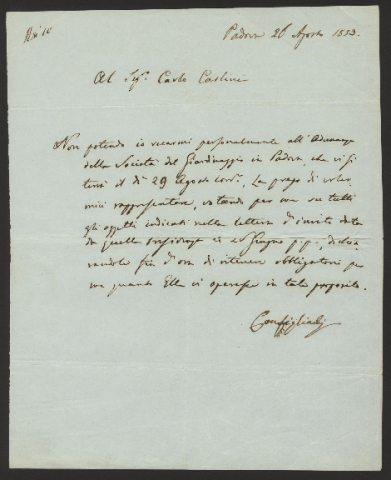 Padova 26 Agosto 1853.
Al Sigr. Carlo
Non potendo io recarmi personalmente all'Adunanza
della Società del Giardinaggio in Padova, che vi si
terrà il dì 29 Agosto corr., La prego di voler
mici rappresentare, votando per me su tutti
gli oggetti indicati nella lettera d'invito data
da quella in 20 Giugno p.p., dichia
randole fin d'ora di ritenere obbligatorio per
me quanto Ella vi operasse in tale proposito.
Configliachi